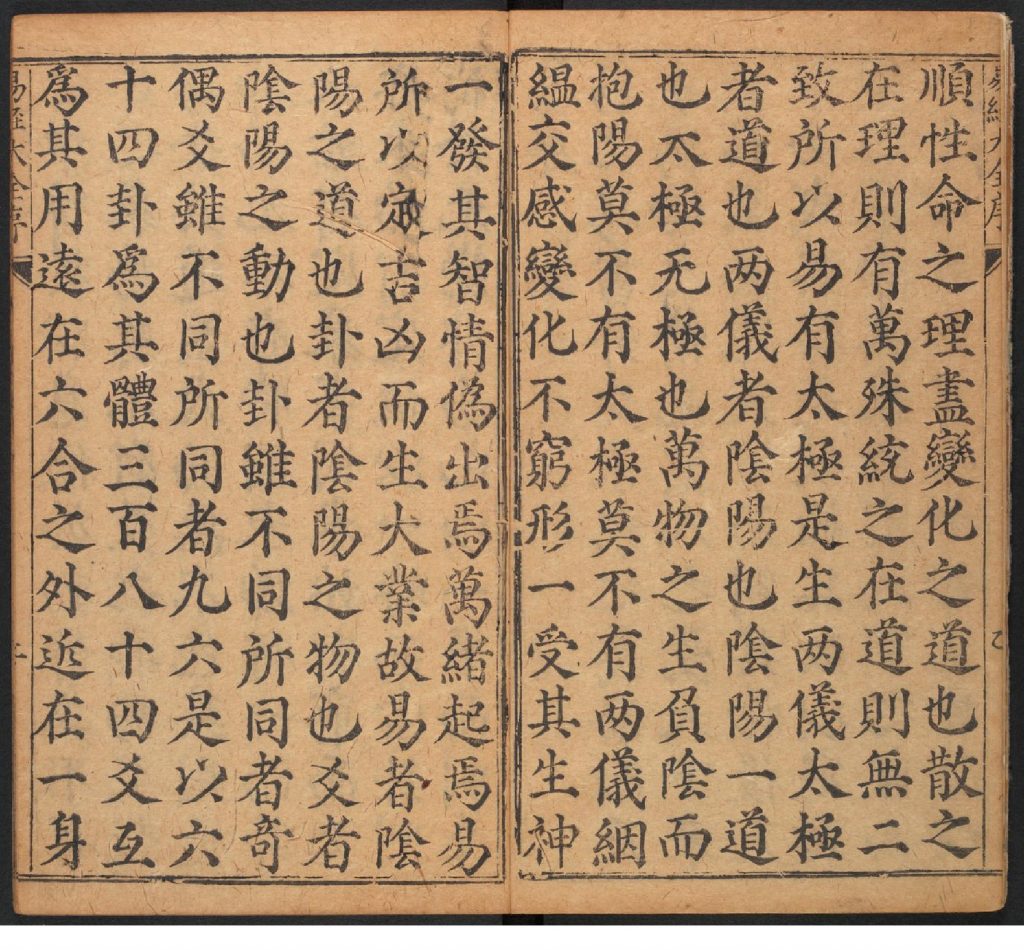 易經大全序
順性命之理盡變化之道也散之
在理則有萬殊統之在道則無二
致所以易有太極是生两儀太極
者道也两儀者陰陽也陰陽一道
也太極无極也萬物之生負陰而
抱陽莫不有太極莫不有两儀絪
緼交感變化不窮形一受其生神
一發其智情僞出焉萬緒起焉易
所以定吉凶而生大業故易者陰
陽之道也卦者陰陽之物也爻者
陰陽之動也卦雖不同所同者奇
偶爻雖不同所同者九六是以六
十四卦爲其體三百八十四爻互
爲其用遠在六合之外近在一身
易經大全序